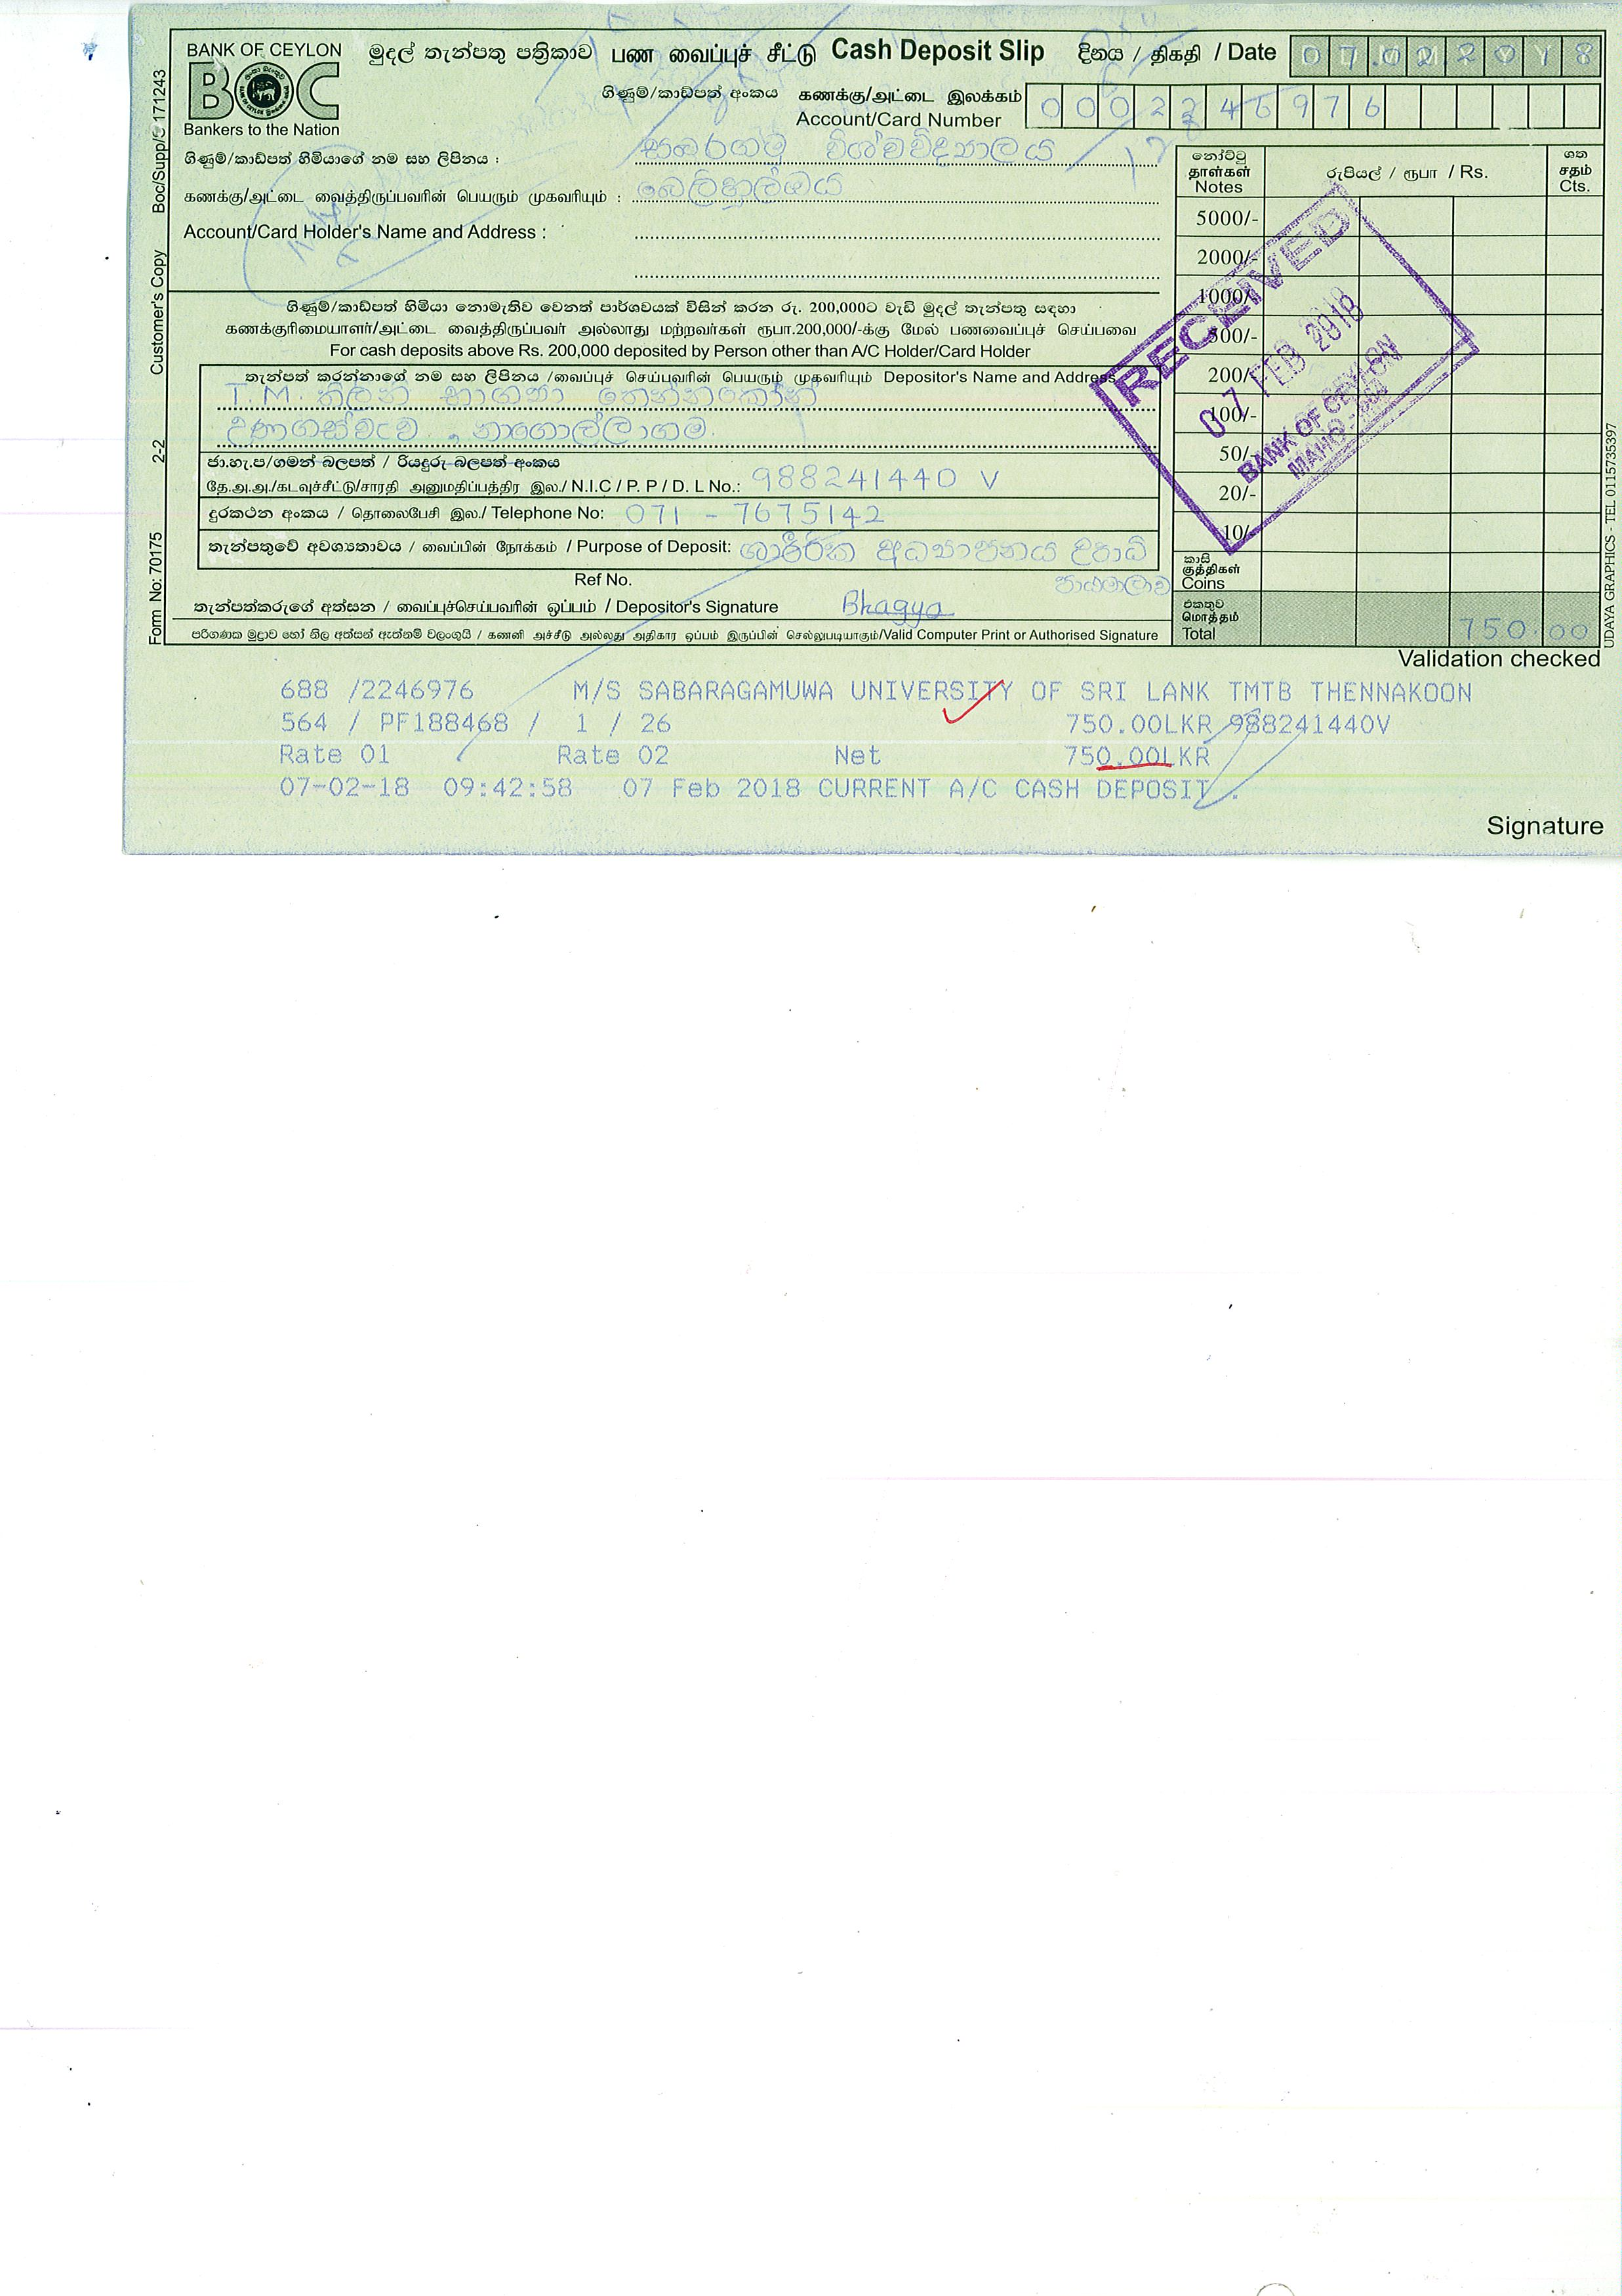 BANK OF CEYLON
BOC
Bankers to the Nation
මුදල් තැන්පතු පත්‍රිකාව பண வைப்புச் சீட்டு Cash Deposit Slip
දිනය / திகதி / Date 07.02.2018
ගිණුම්/කාඩ්පත් අංකය கணக்கு/அட்டை இலக்கம்
Account/Card Number 0002246976
ගිණුම්/කාඩ්පත් හිමියාගේ නම සහ ලිපිනය : සබරගමු විශ්වවිද්‍යාලය
கணக்கு/அட்டை வைத்திருப்பவரின் பெயரும் முகவரியும் : බෙලිහුල්ඔය
Account/Card Holder's Name and Address :
ගිණුම්/කාඩ්පත් හිමියා නොමැතිව වෙනත් පාර්ශවයක් විසින් කරන රු. 200,000ට වැඩි මුදල් තැන්පතු සඳහා
கணக்குரிமையாளர்/அட்டை வைத்திருப்பவர் அல்லாது மற்றவர்கள் ரூபா.200,000/-க்கு மேல் பணவைப்புச் செய்பவை
For cash deposits above Rs. 200,000 deposited by Person other than A/C Holder/Card Holder
තැන්පත් කරන්නාගේ නම සහ ලිපිනය /வைப்புச் செய்பவரின் பெயரும் முகவரியும் Depositor's Name and Address
T.M. තිලිනි භාග්‍යා තෙන්නකෝන්
උණගස්වැව . නාගොල්ලාගම.
ජා.හැ.ප/ගමන් බලපත් / රියදුරු බලපත් අංකය
தே.அ.அ./கடவுச்சீட்டு/சாரதி அனுமதிப்பத்திர இல./ N.I.C / P. P / D. L No.: 988241440 V
දුරකථන අංකය / தொலைபேசி இல./ Telephone No: 071 - 7675142
තැන්පතුවේ අවශ්‍යතාවය / வைப்பின் நோக்கம் / Purpose of Deposit: ශාරීරික අධ්‍යාපනය උපාධි
පාඨමාලාව
Ref No.
තැන්පත්කරුගේ අත්සන / வைப்புச்செய்பவரின் ஒப்பம் / Depositor's Signature Bhagya
පරිගණක මුද්‍රාව හෝ නිල අත්සන් ඇත්නම් වලංගුයි / கணனி அச்சீடு அல்லது அதிகார ஒப்பம் இருப்பின் செல்லுபடியாகும்/Valid Computer Print or Authorised Signature
නෝට්ටු
தாள்கள்
Notes
රුපියල් / ரூபா / Rs.
ශත
சதம்
Cts.
5000/-
2000/-
1000/-
500/-
200/-
100/-
50/-
20/-
10/-
කාසි
குத்திகள்
Coins
එකතුව
மொத்தம்
Total 750.00
RECEIVED
07 FEB 2018
BANK OF CEYLON
Form No: 70175 2-2 Customer's Copy Boc/Supp/S 171243
UDAYA GRAPHICS - TEL 0115735397
Validation checked
688 /2246976 M/S SABARAGAMUWA UNIVERSITY OF SRI LANK TMTB THENNAKOON
564 / PF188468 / 1 / 26 750.00LKR 988241440V
Rate 01 Rate 02 Net 750.00LKR
07-02-18 09:42:58 07 Feb 2018 CURRENT A/C CASH DEPOSIT .
Signature